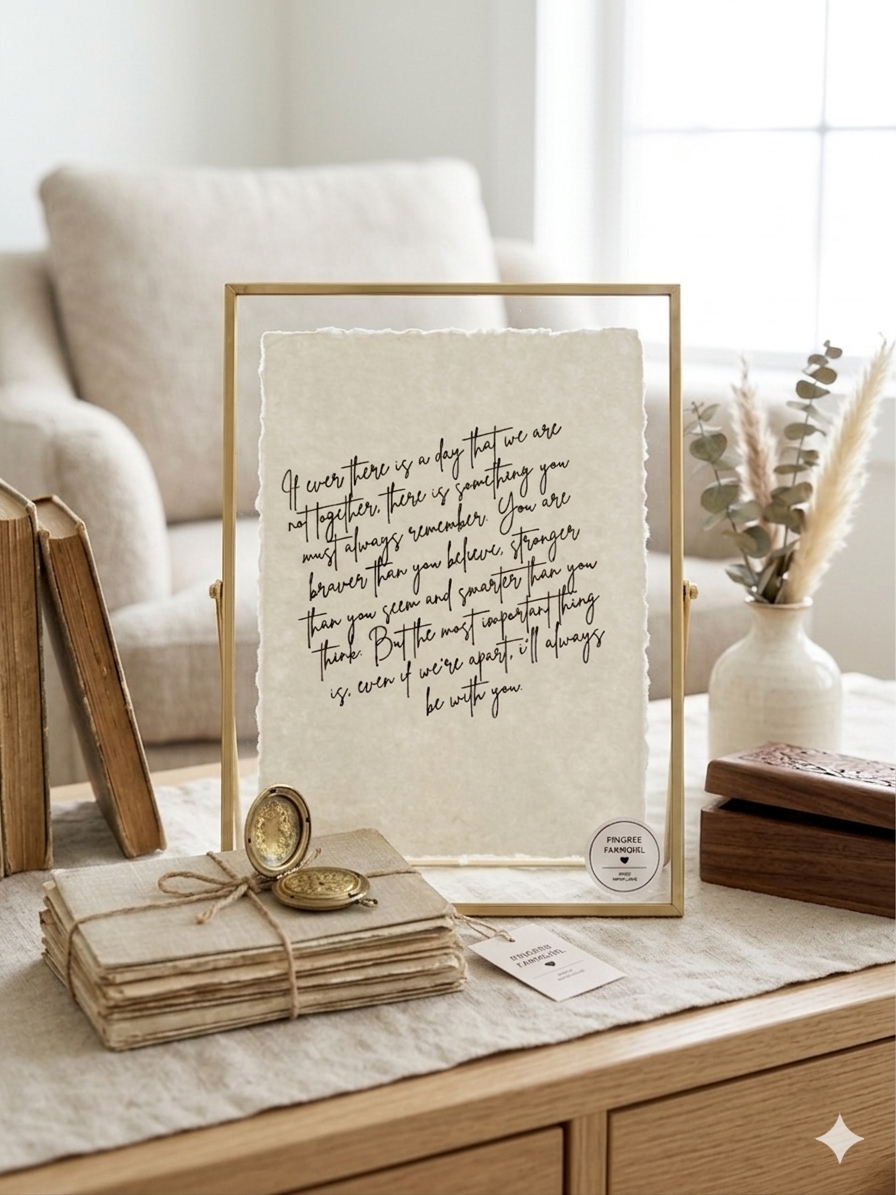 If ever there is a day that we are
not together, there is something you
must always remember. You are
braver than you believe, stronger
than you seem and smarter than you
think. But the most important thing
is, even if we're apart, i'll always
be with you.
FINGREE